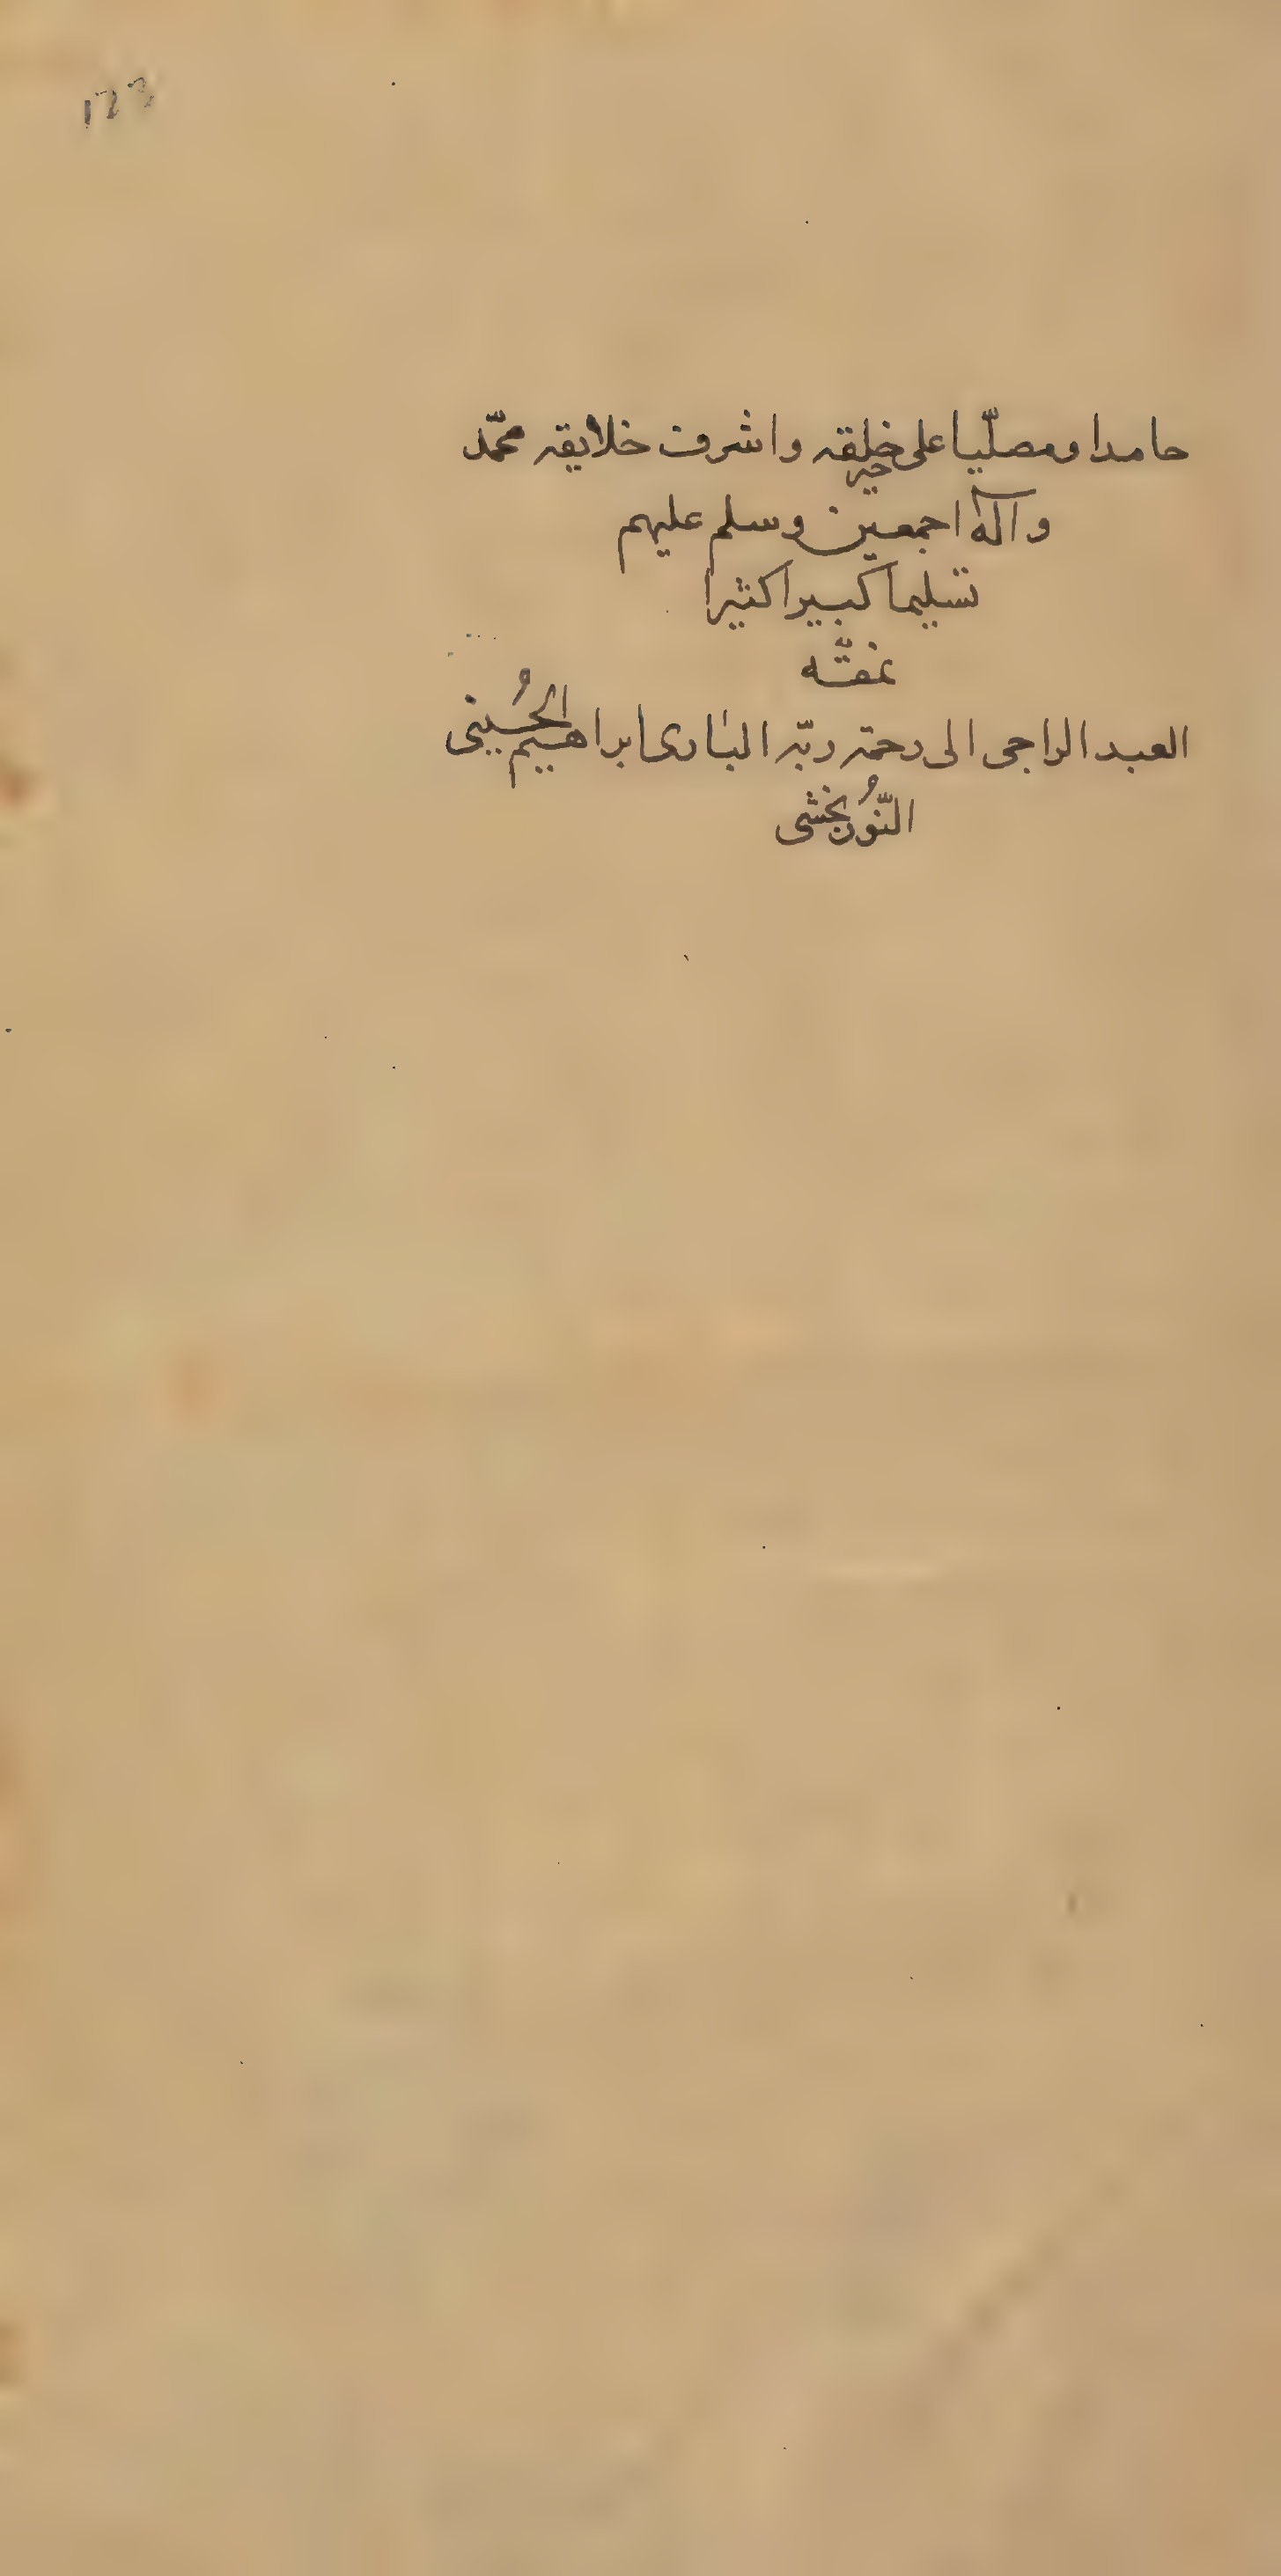 حامدا ومصلّيا على خير خلقه واشرف خلايقه محمّد
وآله اجمعين وسلم عليهم
تسليما كبيرا كثيرا
نمقّه
العبد الراجى الى رحمة ربّه البارى ابراهيم الحُسينى
النّوُربخشى